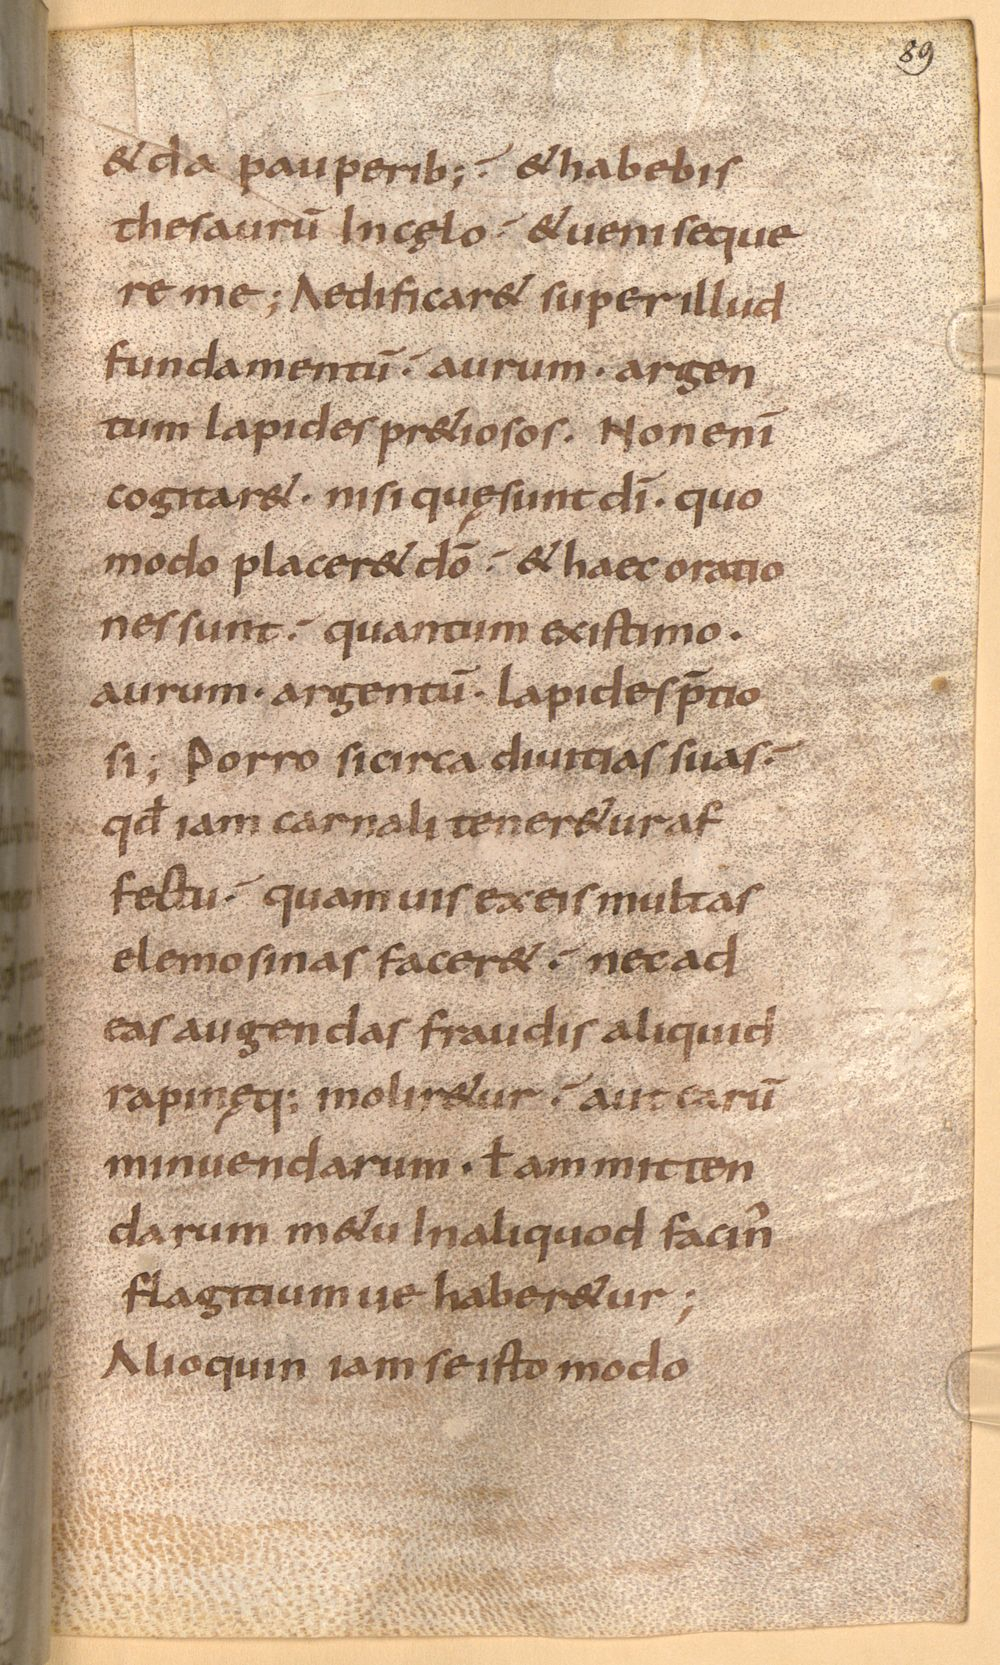 89
& da pauperib; & habebis
thesaurū Incęlo & ueni seque
re me; Aedificar& super illud
fundamentū. aurum. argen
tum lapides pr&iosos. Non enī
cogitar&. nisi quę sunt dī. quo
modo placer& dō & haec oratio
nes sunt. quantum existimo.
aurum. argentū. lapides p̄tio
si; Porro si circa diuitias suas.
qđ iam carnali tener&ur af
fectu. quam uis ex eis multas
elemosinas facer&. nec ad
eas augendas fraudis aliquid
rapinęq; molir&ur. aut earū
minuendarum. ł ammitten
darum m&u In aliquod facin̄
flagitium ue haber&ur;
Alioquin iam se isto modo